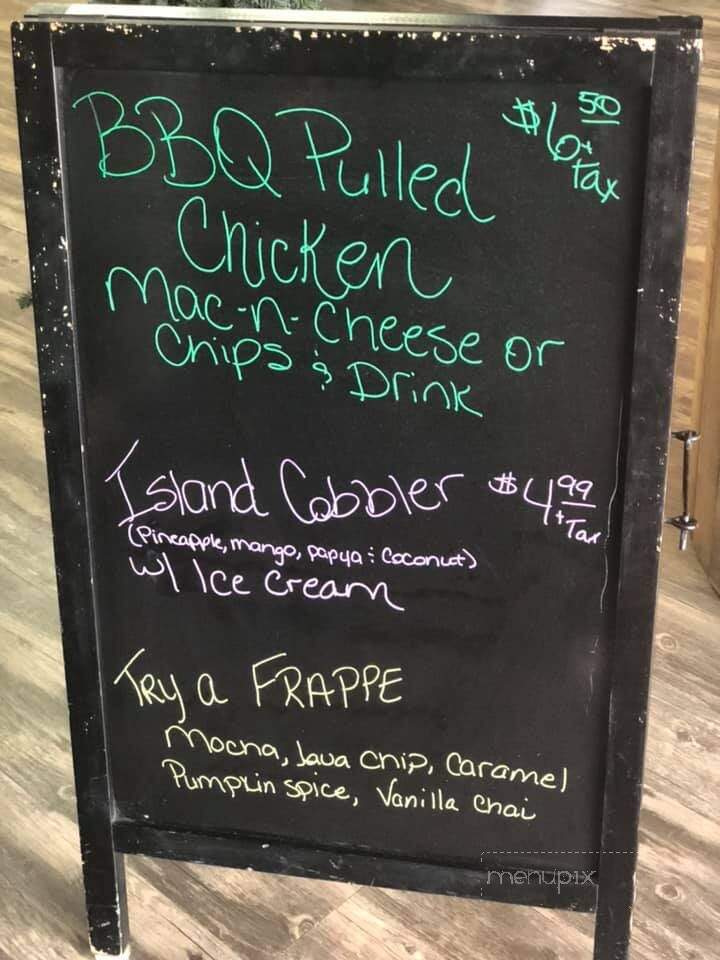 BBQ Pulled $6.50 + tax
Chicken
Mac-n-Cheese or
Chips & Drink
Island Cobbler $4.99 + Tax
(Pineapple, mango, papya & Coconut)
w/ Ice Cream
Try a FRAPPE
Mocha, Java Chip, Caramel
Pumpkin Spice, Vanilla Chai
menupix